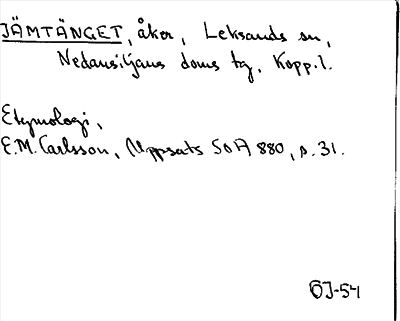 JÄMTÄNGET, åker, Leksands sn,
Nedansiljans doms tg, Kopp. l.
Etymologi,
E.M. Carlsson, Uppsats SOH 880, s. 31.
ÖJ-54